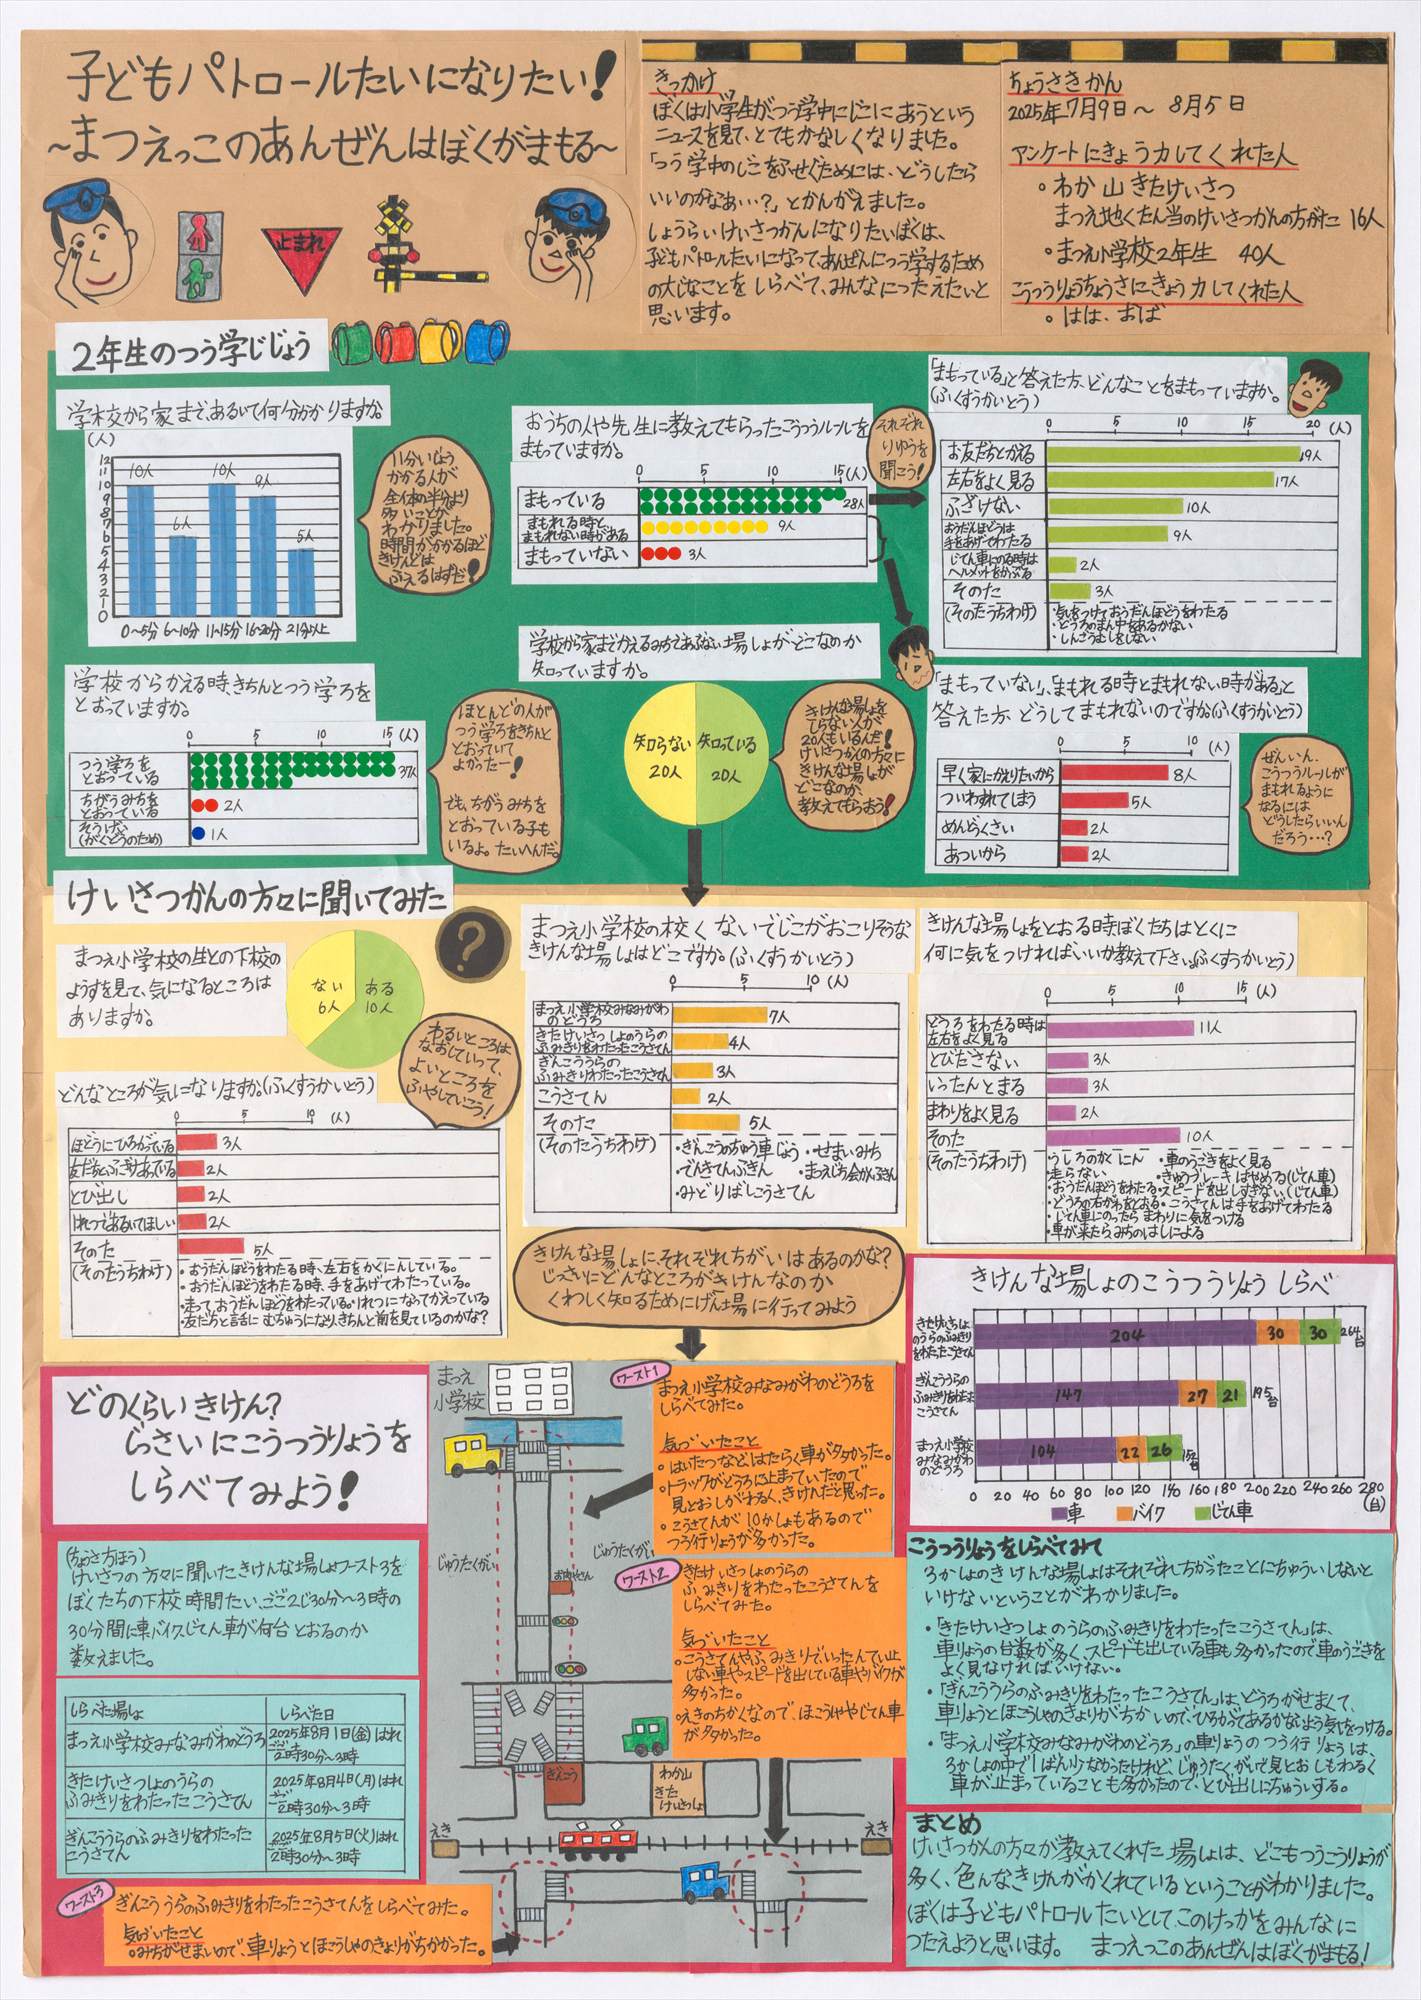 子どもパトロールたいになりたい!
~まつえっこのあんぜんはぼくがまもる~
止まれ
きっかけ
ぼくは小学生がつう学中にじこにあうという
ニュースを見て、とてもかなしくなりました。
「つう学中のじこをふせぐためには、どうしたら
いいのかなぁ…?」とかんがえました。
しょうらいけいさつかんになりたいぼくは、
子どもパトロールたいになってあんぜんにつう学するため
の大じなことをしらべて、みんなにつたえたいと
思います。
ちょうさきかん
2025年7月9日~8月5日
アンケートにきょう力してくれた人
・わか山きたけいさつ
まつえ地くたん当のけいさつかんの方がた 16人
・まつえ小学校2年生 40人
こうつうりょうちょうさにきょう力してくれた人
・はは、おば
2年生のつう学じじょう
学校から家まであるいて何分かかりますか。
(人)
12
11
10
9
8
7
6
5
4
3
2
1
0
10人
6人
10人
9人
5人
0~5分 6~10分 11~15分 16~20分 21分以上
11分いじょう
かかる人が
全体の半分より
多いことが
わかりました。
時間がかかるほど
きけんどは
ふえるはずだ!
おうちの人や先生に教えてもらったこうつうルールを
まもっていますか。
0 5 10 15(人)
まもっている 28人
まもれる時と、
まもれない時がある 9人
まもっていない 3人
それぞれ
りゆうを
聞こう!
「まもっている」と答えた方、どんなことをまもっていますか。
(ふくすうかいとう)
0 5 10 15 20 (人)
お友だちとかえる 19人
左右をよく見る 17人
ふざけない 10人
おうだんほどうは
手をあげてわたる 9人
じてん車にのる時は
ヘルメットをかぶる 2人
そのた 3人
(そのたうちわけ)
・気をつけておうだんほどうをわたる
・どうろのまん中をあるかない
・しんごうむしをしない
学校からかえる時、きちんとつう学ろを
とおっていますか。
0 5 10 15 (人)
つう学ろを
とおっている 37人
ちがうみちを
とおっている 2人
そうげい
(がくどうのため) 1人
ほとんどの人が
つう学ろをきちんと
とおっていて
よかったー!
でも、ちがうみちを
とおっている子も
いるよ。たいへんだ。
学校から家までかえるみちであぶない場しょがどこなのか
知っていますか。
知らない
20人
知っている
20人
きけんな場しょを
しらない人が
20人もいるんだ!
けいさつかんの方々に
きけんな場しょが
どこなのか、
教えてもらおう!
「まもっていない」、「まもれる時とまもれない時がある」と
答えた方、どうしてまもれないのですか(ふくすうかいとう)
0 5 10 (人)
早く家にかえりたいから 8人
ついわすれてしまう 5人
めんどうくさい 2人
あついから 2人
ぜんいん、
こうつうルールが
まもれるように
なるには
どうしたらいいん
だろう…?
けいさつかんの方々に聞いてみた
?
まつえ小学校の生との下校の
ようすを見て、気になるところは
ありますか。
ない
6人
ある
10人
わるいところは
なおしていって、
よいところを
ふやしていこう!
どんなところが気になりますか。(ふくすうかいとう)
0 5 10 (人)
ほどうにひろがっている 3人
友だちとふざけあっている 2人
とび出し 2人
1れつであるいてほしい 2人
そのた 5人
(そのたうちわけ)
・おうだんほどうをわたる時、左右をかくにんしている。
・おうだんほどうをわたる時、手をあげてわたっている。
・走っておうだんほどうをわたっている。・1れつになってかえっている
・友だちと話にむちゅうになり、きちんと前を見ているのかな?
まつえ小学校の校くないでじこがおこりそうな
きけんな場しょはどこですか。(ふくすうかいとう)
0 5 10 (人)
まつえ小学校みなみがわ
のどうろ 7人
きたけいさつしょのうらの
ふみきりをわたったこうさてん 4人
ぎんこううらの
ふみきりわたったこうさてん 3人
こうさてん 2人
そのた 5人
(そのたうちわけ)
・ぎんこうのちゅう車じょう ・せまいみち
・でんきてんふきん ・まつえじち会かんふきん
・みどりばしこうさてん
きけんな場しょをとおる時ぼくたちはとくに
何に気をつければいいか教えて下さい。(ふくすうかいとう)
0 5 10 15 (人)
どうろをわたる時は
左右をよく見る 11人
とびださない 3人
いったんとまる 3人
まわりをよく見る 2人
そのた 10人
(そのたうちわけ)
・うしろのかくにん ・車のうごきをよく見る
・走らない ・きゅうブレーキはやめる(じてん車)
・おうだんほどうをわたる・スピードを出しすぎない(じてん車)
・どうろの右がわをとおる・こうさてんは手をあげてわたる
・じてん車にのったらまわりに気をつける
・車が来たらみちのはしによる
きけんな場しょにそれぞれちがいはあるのかな?
じっさいにどんなところがきけんなのか
くわしく知るためにげん場に行ってみよう
きけんな場しょのこうつうりょうしらべ
きたけいさつしょ
のうらのふみきり
をわたったこうさてん
204 30 30 264台
ぎんこううらの
ふみきりをわたった
こうさてん
147 27 21 195台
まつえ小学校
みなみがわ
のどうろ
104 22 26 152台
0 20 40 60 80 100 120 140 160 180 200 220 240 260 280
(台)
車 バイク じてん車
どのくらいきけん?
じっさいにこうつうりょうを
しらべてみよう!
(ちょうさ方ほう)
けいさつの方々に聞いたきけんな場しょワースト3を
ぼくたちの下校時間たい、ごご2じ30分~3時の
30分間に車、バイク、じてん車が何台とおるのか
数えました。
しらべた場しょ しらべた日
まつえ小学校みなみがわのどうろ
2025年8月1日(金)はれ
ごご2時30分~3時
きたけいさつしょのうらの
ふみきりをわたったこうさてん
2025年8月4日(月)はれ
ごご2時30分~3時
ぎんこううらのふみきりをわたった
こうさてん
2025年8月5日(火)はれ
ごご2時30分~3時
ワースト3
ぎんこううらのふみきりをわたったこうさてんをしらべてみた。
気づいたこと
・みちがせまいので、車りょうとほこうしゃのきょりがちかかった。
まつえ
小学校
じゅうたくがい
じゅうたくがい
ぎんこう
わか山
きた
けいさつしょ
えき
えき
ワースト1
まつえ小学校みなみがわのどうろを
しらべてみた。
気づいたこと
・はいたつなど、はたらく車が多かった。
・トラックがどうろに止まっていたので
見とおしがわるく、きけんだと思った。
・こうさてんが10かしょもあるので
つう行りょうが多かった。
ワースト2
きたけいさつしょのうらの
ふみきりをわたったこうさてんを
しらべてみた。
気づいたこと
・こうさてんやふみきりで、いったんてい止
しない車やスピードを出している車やバイクが
多かった。
・えきのちかくなので、ほこうしゃやじてん車
が多かった。
こうつうりょうをしらべてみて
3かしょのきけんな場しょはそれぞれちがったことにちゅういしないと
いけないということがわかりました。
・「きたけいさつしょのうらのふみきりをわたったこうさてん」は、
車りょうの台数が多く、スピードも出している車も多かったので車のうごきを
よく見なければいけない。
・「ぎんこううらのふみきりをわたったこうさてん」は、どうろがせまくて、
車りょうとほこうしゃのきょりがちかいので、ひろがってあるかないよう気をつける。
・「まつえ小学校みなみがわのどうろ」の車りょうのつう行りょうは、
3かしょの中で1ばん少なかったけれど、じゅうたくがいで見とおしもわるく
車が止まっていることも多かったので、とび出しにちゅういする。
まとめ
けいさつかんの方々が教えてくれた場しょは、どこもつうこうりょうが
多く、色んなきけんがかくれているということがわかりました。
ぼくは子どもパトロールたいとして、このけっかをみんなに
つたえようと思います。 まつえっこのあんぜんはぼくがまもる!